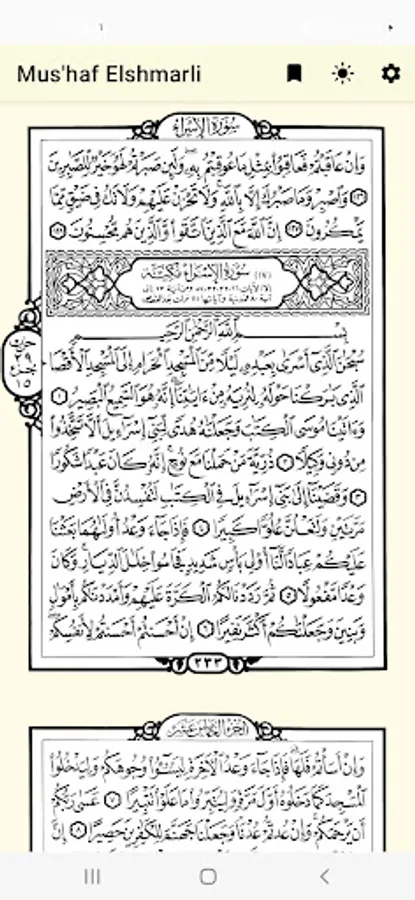 Mus'haf Elshmarli
سورة الإسراء
وَإِنْ عَاقَبْتُمْ فَعَاقِبُوا۟ بِمِثْلِ مَا عُوقِبْتُم بِهِۦ وَلَئِن صَبَرْتُمْ لَهُوَ خَيْرٌ لِّلصَّٰبِرِينَ
١٢٦ وَٱصْبِرْ وَمَا صَبْرُكَ إِلَّا بِٱللَّهِ وَلَا تَحْزَنْ عَلَيْهِمْ وَلَا تَكُ فِى ضَيْقٍ مِّمَّا
يَمْكُرُونَ ١٢٧ إِنَّ ٱللَّهَ مَعَ ٱلَّذِينَ ٱتَّقَوا۟ وَّٱلَّذِينَ هُم مُّحْسِنُونَ ١٢٨
(١٧) سورة الإسراء مكية
بِسْمِ ٱللَّهِ ٱلرَّحْمَٰنِ ٱلرَّحِيمِ
سُبْحَٰنَ ٱلَّذِىٓ أَسْرَىٰ بِعَبْدِهِۦ لَيْلًا مِّنَ ٱلْمَسْجِدِ ٱلْحَرَامِ إِلَى ٱلْمَسْجِدِ ٱلْأَقْصَا
ٱلَّذِى بَٰرَكْنَا حَوْلَهُۥ لِنُرِيَهُۥ مِنْ ءَايَٰتِنَآ إِنَّهُۥ هُوَ ٱلسَّمِيعُ ٱلْبَصِيرُ ١
وَءَاتَيْنَا مُوسَى ٱلْكِتَٰبَ وَجَعَلْنَٰهُ هُدًى لِّبَنِىٓ إِسْرَٰٓءِيلَ أَلَّا تَتَّخِذُوا۟
مِن دُونِى وَكِيلًا ٢ ذُرِّيَّةَ مَنْ حَمَلْنَا مَعَ نُوحٍ إِنَّهُۥ كَانَ عَبْدًا شَكُورًا
٣ وَقَضَيْنَآ إِلَىٰ بَنِىٓ إِسْرَٰٓءِيلَ فِى ٱلْكِتَٰبِ لَتُفْسِدُنَّ فِى ٱلْأَرْضِ
مَرَّتَيْنِ وَلَتَعْلُنَّ عُلُوًّا كَبِيرًا ٤ فَإِذَا جَآءَ وَعْدُ أُولَىٰهُمَا بَعَثْنَا
عَلَيْكُمْ عِبَادًا لَّنَآ أُو۟لِى بَأْسٍ شَدِيدٍ فَجَاسُوا۟ خِلَٰلَ ٱلدِّيَارِ وَكَانَ
وَعْدًا مَّفْعُولًا ٥ ثُمَّ رَدَدْنَا لَكُمُ ٱلْكَرَّةَ عَلَيْهِمْ وَأَمْدَدْنَٰكُم بِأَمْوَٰلٍ
وَبَنِينَ وَجَعَلْنَٰكُمْ أَكْثَرَ نَفِيرًا ٦ إِنْ أَحْسَنتُمْ أَحْسَنتُمْ لِأَنفُسِكُمْ
٢٣٣
الجزء الخامس عشر
وَإِنْ أَسَأْتُمْ فَلَهَا فَإِذَا جَآءَ وَعْدُ ٱلْءَاخِرَةِ لِيَسُۥٓـُٔوا۟ وُجُوهَكُمْ وَلِيَدْخُلُوا۟
ٱلْمَسْجِدَ كَمَا دَخَلُوهُ أَوَّلَ مَرَّةٍ وَلِيُتَبِّرُوا۟ مَا عَلَوْا۟ تَتْبِيرًا ٧ عَسَىٰ رَبُّكُمْ
أَن يَرْحَمَكُمْ وَإِنْ عُدتُّمْ عُدْنَا وَجَعَلْنَا جَهَنَّمَ لِلْكَٰفِرِينَ حَصِيرًا ٨ إِنَّ